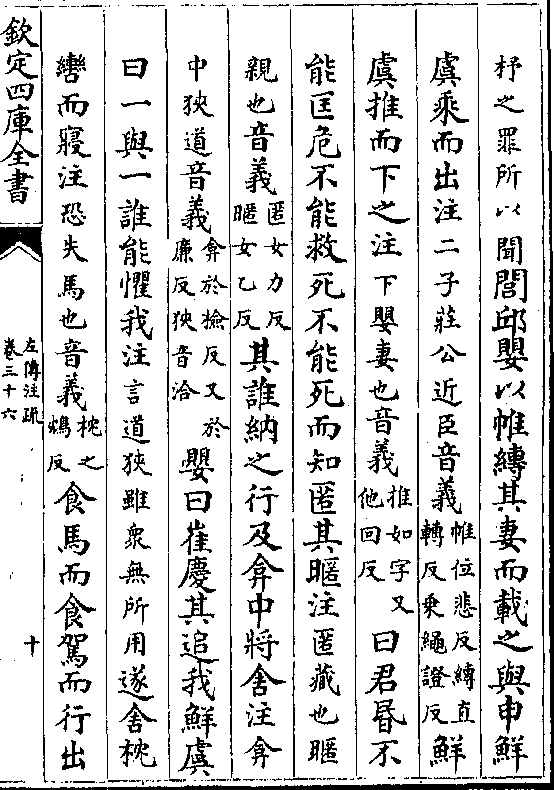 杼之罪所以聞閭邱嬰以帷縛其妻而載之與申鮮
虞乘而出注二子莊公近臣音義帷位悲反縛直轉反乘繩證反鮮
虞推而下之注下嬰妻也音義推如字又他回反曰君昬不
能匡危不能救死不能死而知匿其暱注匿藏也暱
親也音義匿女力反暱女乙反其誰納之行及弇中將舍注弇
中狹道音義弇於檢反又於廉反狹音洽嬰曰崔慶其追我鮮虞
曰一與一誰能懼我注言道狹雖衆無所用遂舍枕
轡而寢注恐失馬也音義枕之鴆反食馬而食駕而行出
欽定四庫全書
左傳注疏
卷三十六
十